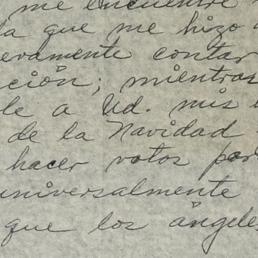 me encuentre
la que me hizo
eramente contar
ción; mientras
le a Ud. mis
de la Navidad
hacer votos por
universalmente
que los ángeles